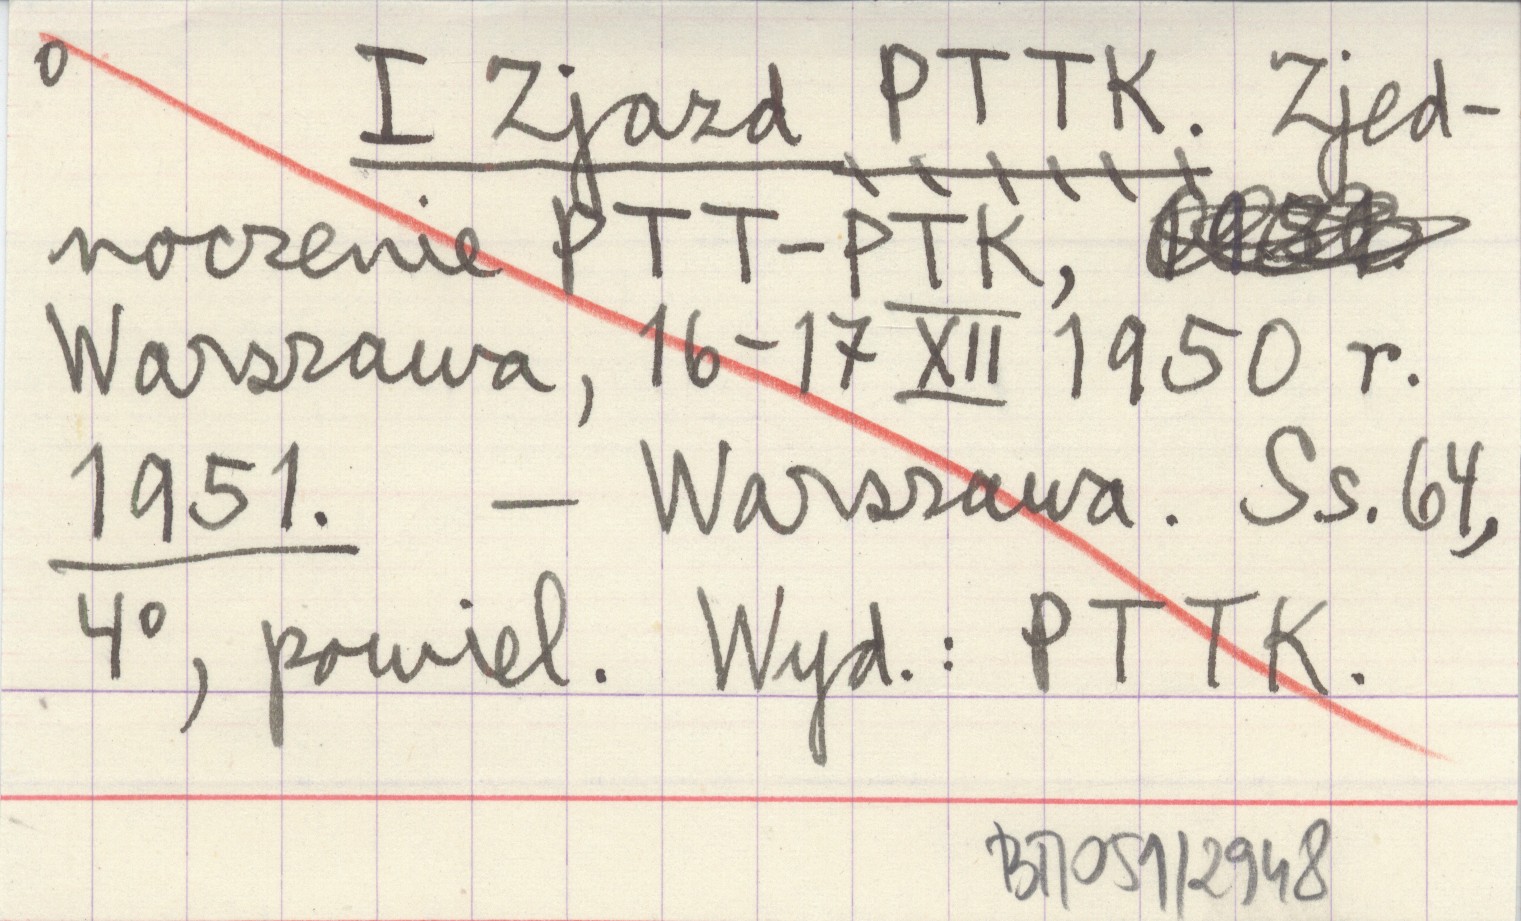 0 I Zjazd PTTK. Zjed-
noczenie PTT-PTK,
Warszawa, 16-17 XII 1950 r.
1951. — Warszawa. Ss. 64,
4°, powiel. Wyd.: PTTK.
051/2948